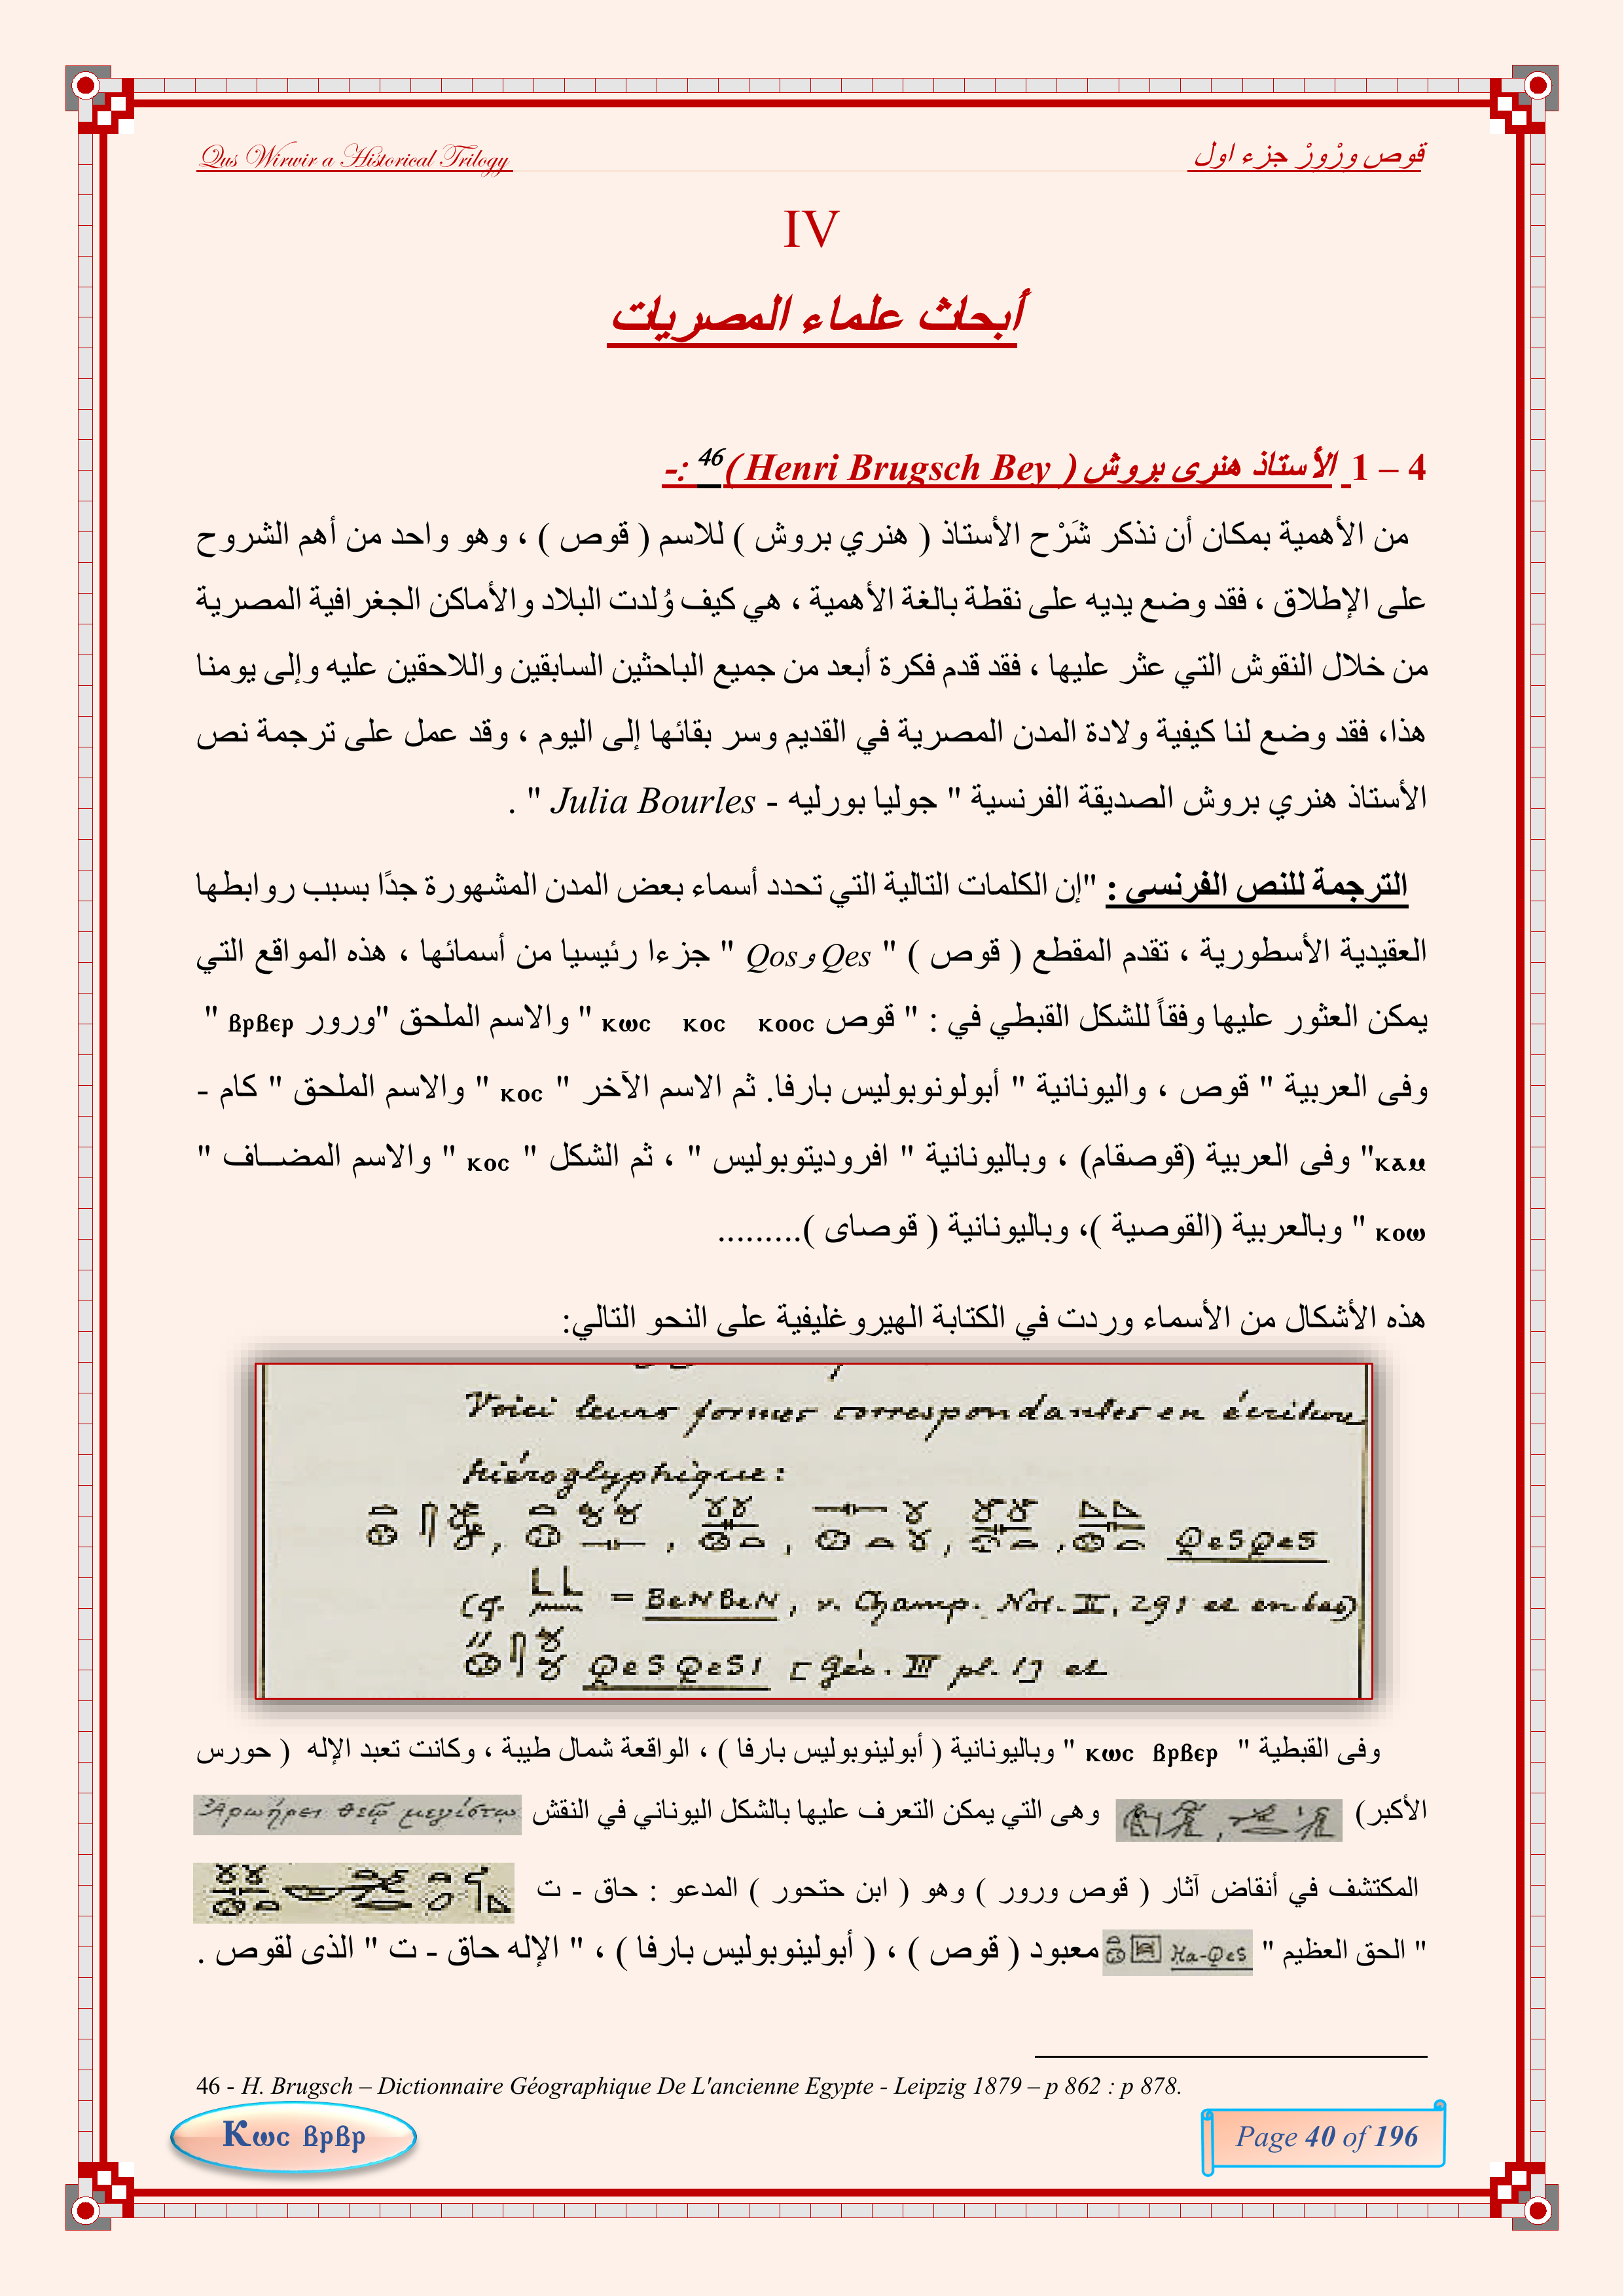 قوص ورْورْ جزء اول
Qus Wirwir a Historical Trilogy
IV
أبحاث علماء المصريات
4 – 1 الأستاذ هنرى بروش ( Henri Brugsch Bey )46 :-
من الأهمية بمكان أن نذكر شَرْح الأستاذ ( هنري بروش ) للاسم ( قوص ) ، وهو واحد من أهم الشروح
على الإطلاق ، فقد وضع يديه على نقطة بالغة الأهمية ، هي كيف وُلدت البلاد والأماكن الجغرافية المصرية
من خلال النقوش التي عثر عليها ، فقد قدم فكرة أبعد من جميع الباحثين السابقين واللاحقين عليه وإلى يومنا
هذا، فقد وضع لنا كيفية ولادة المدن المصرية في القديم وسر بقائها إلى اليوم ، وقد عمل على ترجمة نص
الأستاذ هنري بروش الصديقة الفرنسية " جوليا بورليه - Julia Bourles " .
الترجمة للنص الفرنسى : "إن الكلمات التالية التي تحدد أسماء بعض المدن المشهورة جدًا بسبب روابطها
العقيدية الأسطورية ، تقدم المقطع ( قوص ) " Qes وQos " جزءا رئيسيا من أسمائها ، هذه المواقع التي
يمكن العثور عليها وفقاً للشكل القبطي في : " قوص ⲕⲱⲥ ⲕⲟⲥ ⲕⲟⲟⲥ " والاسم الملحق "ورور ⲃⲣⲃⲉⲣ "
وفى العربية " قوص ، واليونانية " أبولونوبوليس بارفا. ثم الاسم الآخر " ⲕⲟⲥ " والاسم الملحق " كام -
ⲕⲁⲙ" وفى العربية (قوصقام) ، وباليونانية " افروديتوبوليس " ، ثم الشكل " ⲕⲟⲥ " والاسم المضـاف "
ⲕⲟⲱ " وبالعربية (القوصية )، وباليونانية ( قوصاى ).........
هذه الأشكال من الأسماء وردت في الكتابة الهيروغليفية على النحو التالي:
Voici leurs formes correspondantes en écriture
hiéroglyphique:
QeSQeS
(cf. = BeNBeN, v. Champ. Not. II, 291 et en bas)
QeSQeSI [Géo. III pl. 17 et
وفى القبطية " ⲕⲱⲥ ⲃⲣⲃⲉⲣ " وباليونانية ( أبولينوبوليس بارفا ) ، الواقعة شمال طيبة ، وكانت تعبد الإله ( حورس
الأكبر) وهى التي يمكن التعرف عليها بالشكل اليوناني في النقش Ἀρωήρει θεῷ μεγίστῳ
المكتشف في أنقاض آثار ( قوص ورور ) وهو ( ابن حتحور ) المدعو : حاق - ت
" الحق العظيم " Ha-QeS معبود ( قوص ) ، ( أبولينوبوليس بارفا ) ، " الإله حاق - ت " الذى لقوص .
46 - H. Brugsch – Dictionnaire Géographique De L'ancienne Egypte - Leipzig 1879 – p 862 : p 878.
Ⲕⲱⲥ ⲃⲣⲃⲣ
Page 40 of 196